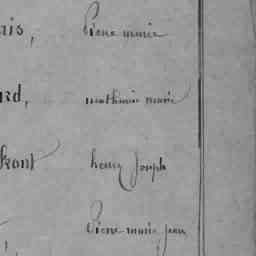 ais, Pierre marie
ard, mathurin marie
kont henry Joseph
Pierre marie jean